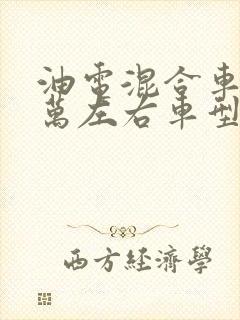 油電混合車
萬左右車型
西方經濟學